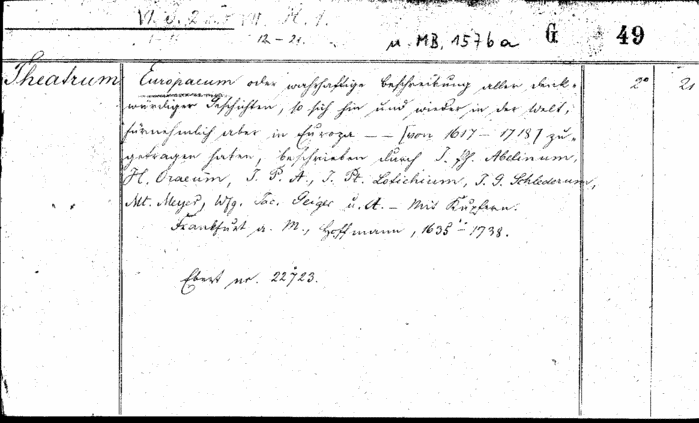 VI. J. 2
12-21.
u. MB, 1576a G 49
Theatrum Europaeum oder wahrhaftige Beschreibung aller denk- 2° 21
würdiger Geschichten, so sich hin und wieder in der Welt,
fürnehmlich aber in Europa -- [von 1617-1718] zu-
getragen haben, beschrieben durch J. Ph. Abelinum,
H. Oraeum, J. P. A., J. Pt. Lotichium, J. G. Schlederum,
Mt. Meyer, Wfg. Jac. Geiger u. A. - Mit Kupfern.
Frankfurt a. M., Hoffmann, 1635-1738.
Ebert nr. 22723.